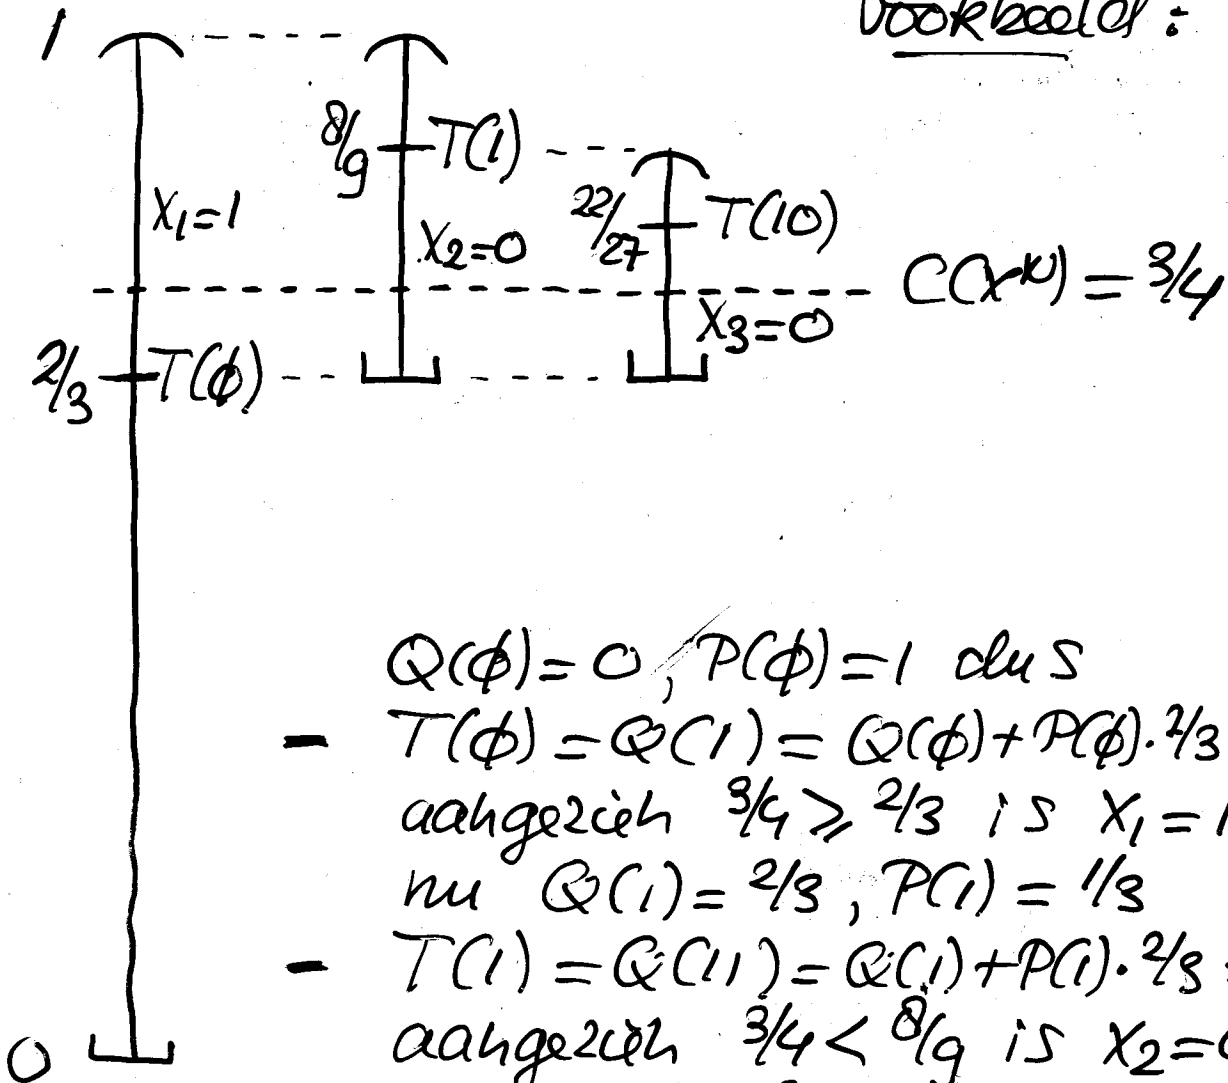 Voorbeeld:
1
8/9 T(1)
X₁=1
22/27 T(10)
X₂=0
C(xᴺ) = 3/4
X₃=0
2/3 T(ϕ)
Q(ϕ) = 0, P(ϕ) = 1 dus
- T(ϕ) = Q(1) = Q(ϕ) + P(ϕ). 2/3
aangezien 3/4 ≥ 2/3 is X₁ = 1
nu Q(1) = 2/3, P(1) = 1/3
- T(1) = Q(11) = Q(1) + P(1). 2/3
aangezien 3/4 < 8/9 is X₂=0
0